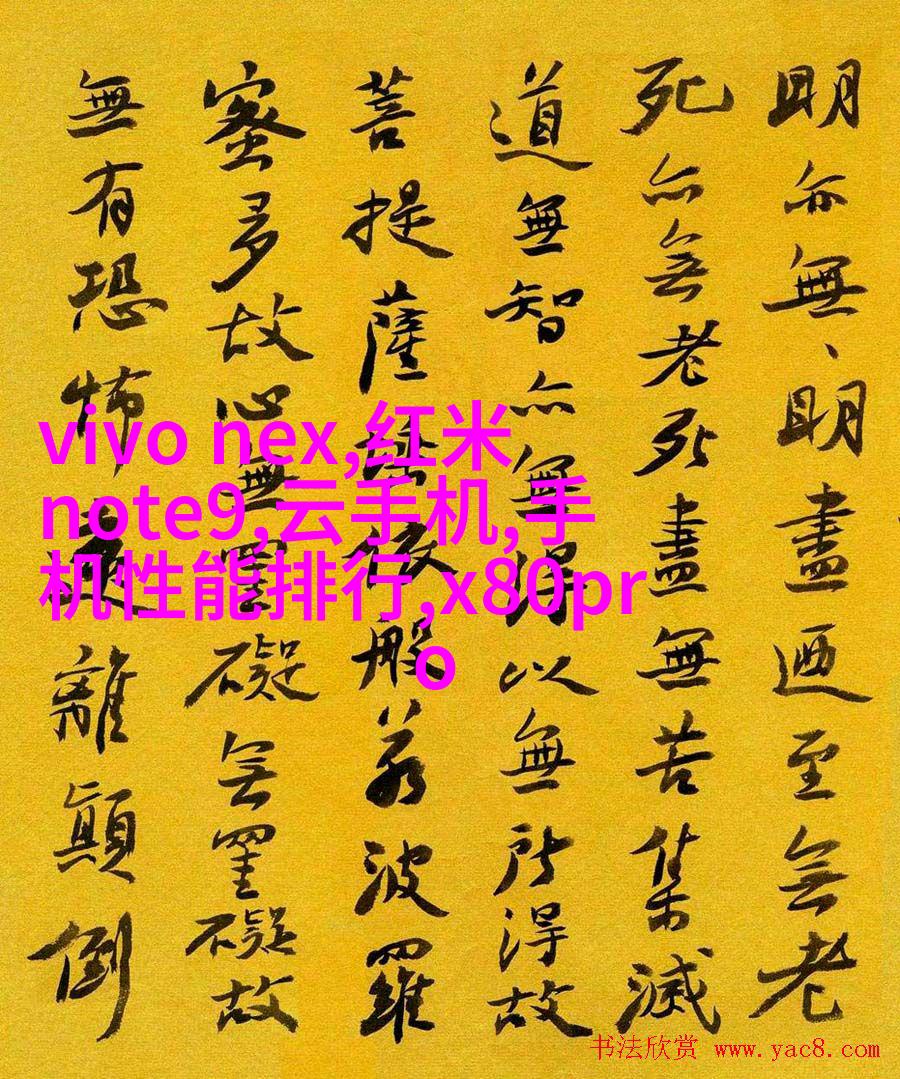 明亦無、明盡迺至無老
死亦無老死盡無苦集滅
道無智亦無得以無所得故
菩提薩埵依般若波羅
蜜多故心無罣礙無罣礙故
無有恐怖遠離顛倒
vivo nex,红米
note9,云手机,手
机性能排行,x80pr
o
书法欣赏 www.yac8.com